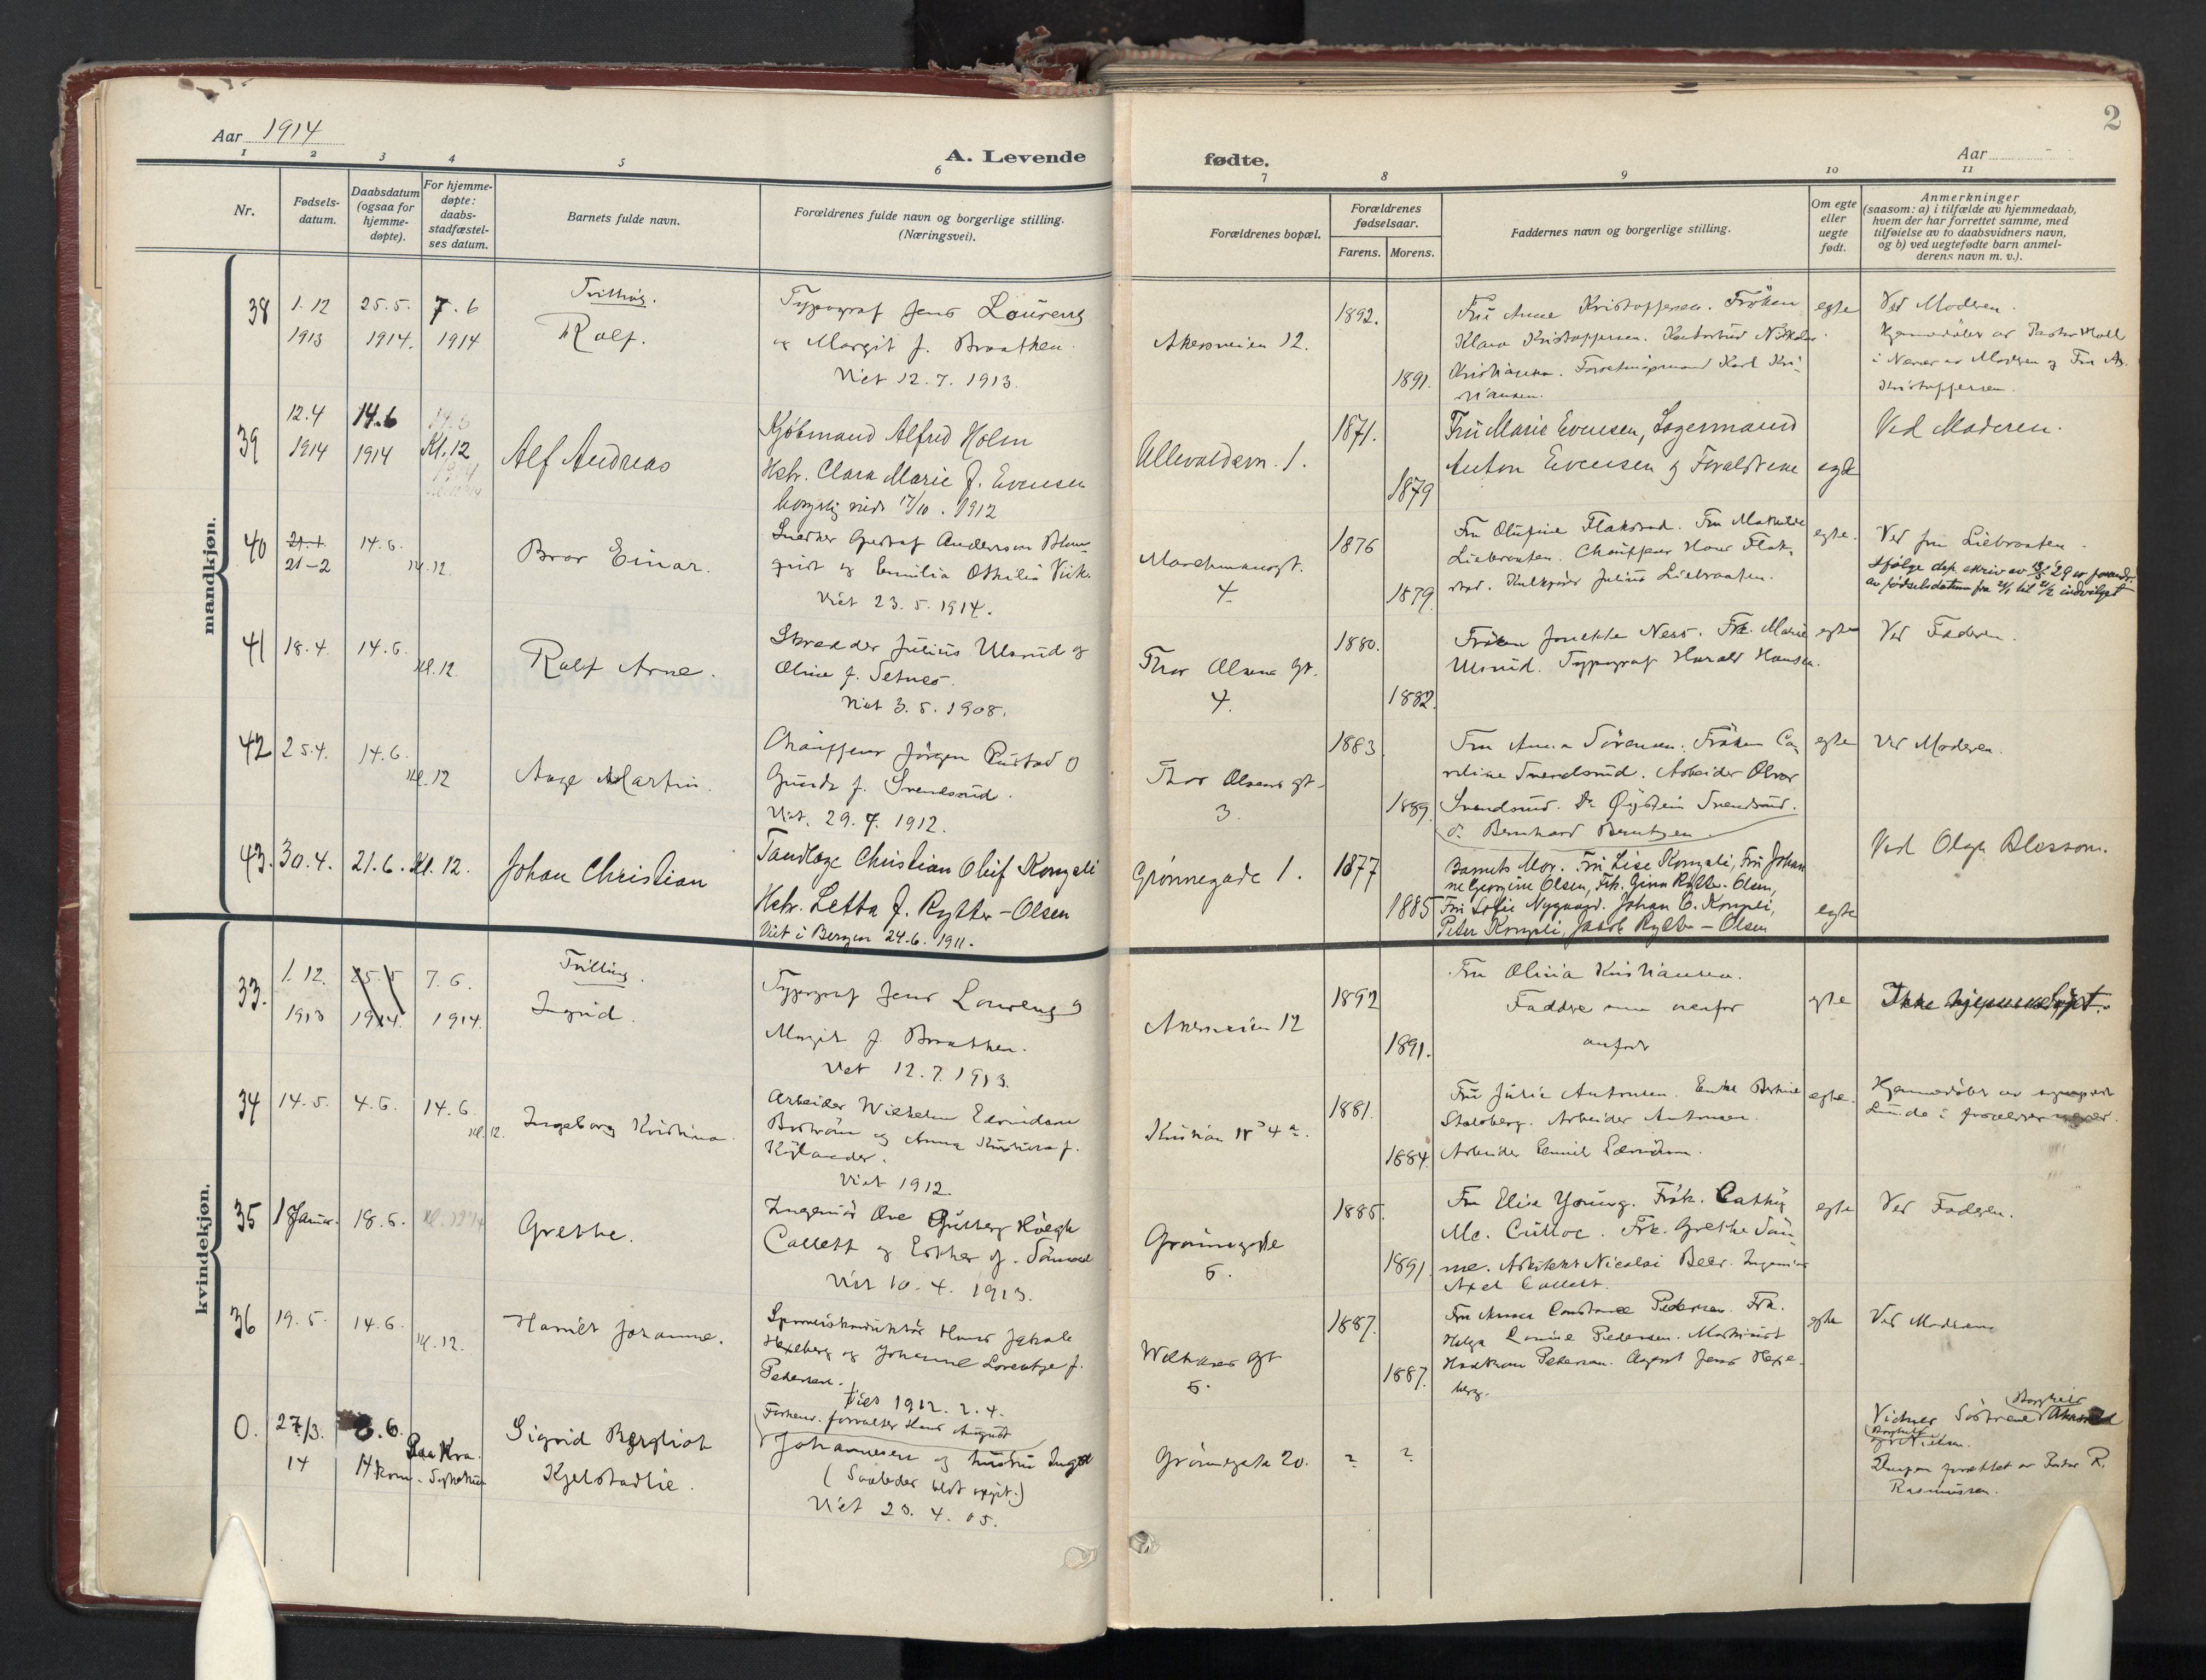 Aar 1914
A. Levende fødte.
Aar
2
1 2 3 4 5 6 7 8 9 10 11
Nr.
Fødsels-
datum.
Daabsdatum
(ogsaa for
hjemme-
døpte).
For hjemme-
døpte:
daabs-
stadfæstel-
ses datum.
Barnets fulde navn.
Forældrenes fulde navn og borgerlige stilling.
(Næringsvei).
Forældrenes bopæl.
Forældrenes
fødselsaar.
Farens. Morens.
Faddernes navn og borgerlige stilling.
Om egte
eller
uegte
født.
Anmerkninger
(saasom: a) i tilfælde av hjemmedaab,
hvem der har forrettet samme, med
tilføielse av to daabsvidners navn,
og b) ved uegtefødte barn anmel-
derens navn m. v.).
mandkjøn.
38
1.12
1913
25.5.
1914.
7.6
1914
Trilling.
Rolf.
Typograf Jens Lourens
og Margit f. Braathen.
Viet 12.7.1913.
Akersveien 12.
1892.
1891.
Fru Anne Kristoffersen. Frøken
Klara Kristoffersen. Nikolai
Kristiansen. Karl Kri-
stiansen.
egte
Ved Moderen.
Hjemmedøbt av Pastor
i Nærvær av Moderen og Fru
Kristoffersen.
39
12.4
1914
14.6
1914
Kl. 12
Alf Andreas
Kjøbmand Alfred Holm
Hstr. Clara Marie f. Evensen
borgerlig viede 17/10. 1912
Ullevoldsvn. 1.
1871.
1879
Fru Marie Evensen, Lagermand
Anton Evensen og Forældrene
egte
Ved Moderen.
40
21.1
21-2
14.6.
Kl. 12.
Bror Einar.
Snekker Gustaf Andersson Blom-
quist og Emilia Othilia Vik.
Viet 23.5.1914.
4.
1876
1879
Fru Olufine Flakstad. Fru Mathilde
Liebraaten. Chauffeur Hans Flak-
stad. Julius Liebraaten.
egte.
Ved fru Liebraaten.
Ifølge dep. skriv av 13/5 '29 er forandr.
av fødselsdatum fra 21/1 til 21/2 indvilget
41
18.4.
14.6.
Kl. 12.
Rolf Arne.
Skrædder Julius Ulsrud og
Oline f. Setnes.
Viet 3.5.1908.
Thor Olsens gt.
4.
1880.
1882.
Frøken Ness. Frk. Marie
Ulsrud. Typograf Harald Hansen.
egte
Ved Faderen.
42
25.4.
14.6.
Kl. 12
Aage Martin.
Chauffeur Jørgen Rustad og
Gunda f. Svendsrud.
Viet. 29.7.1912.
Thor Olsens gt.
3.
1883
1889.
Fru Anna Sørensen. Frøken Ca-
roline Svendsrud. Arbeider Olvar
Svendsrud. Do Øystein Svendsrud.
do. Bernhard Berntzen.
egte
Ved Moderen.
43.
30.4.
21.6.
Kl. 12.
Johan Christian
Tandlæge Christian Oluf Kongsli
Hstr. Letta f. Rytter-Olsen
Viet i Bergen 24.6.1911.
Grønnegade 1.
1877
1885
Barnets Mor. Fru Lise Kongsli, Fru Johan-
ne Georgine Olsen, Frk. Gina Rytter-Olsen,
Fru Sofie Nygaard. Johan C. Kongsli,
Peter Kongsli, Jacob Rytter-Olsen
egte
Ved Olga Blossom.
kvindekjøn.
33.
1.12.
1913
25.5
1914.
7.6.
1914.
Trilling.
Ingrid.
Typograf Jens Lourens og
Margit f. Braathen.
Viet 12.7.1913.
Akersveien 12
1892
1891.
Fru Olivia Kristiansen.
Faddere som ovenfor
anført
egte
Ikke hjemmedøpt.
34
14.5.
4.6.
14.6.
Kl. 12.
Ingeborg Kristina.
Arbeider Wilhelm Edvindson
og Anna Kristina f.
Viet 1912.
1881.
1884.
Fru Julie Antonsen. Enke
Stalsberg. Arbeider Antonsen.
Arbeider Emil Edvindson.
egte.
Hjemmedøbt av
Lunde i forældrenes nærvær.
35
1 Januar.
18.6.
Grethe.
Ingeniør Ove Gulberg Høegh
Collett og Esther f. Sømme
Viet 10.4.1913.
Grønnegade
5.
1885.
1891
Fru Elise Young. Frøk. Cathy
Mc. Culloc. Frk. Grethe Søm-
me. Arkitekt Nicolai Beer. Ingeniør
Axel Collett.
egte
Ved Faderen.
36
19.5.
14.6.
Kl. 12.
Harriet Johanne.
Sporveiskonduktør Hans Jakob
Hexeberg og Johanne Lorentze f.
Pedersen.
Viet 1912. 2.4.
gt
5.
1887.
1887.
Fru Anna Constance Pedersen. Frk.
Helga Louise Pedersen. Maskinist
Pedersen. Agent Jens Hexe-
berg.
egte
Ved Moderen
0.
27/3.
14
8.6.
14
Paa Kra.
kom. Sykehus
Sigrid Bergliot
Kjelstadlie.
Forhenv. forvalter Hans August
Johannesen og hustru Inga
(Saaledes blot opgit.)
Viet 23.4.05.
Grønnegate 20.
?
?
Vidner Søstrene
Borghild
Nielsen.
Daapen forrettet av Pastor R.
Rasmussen.